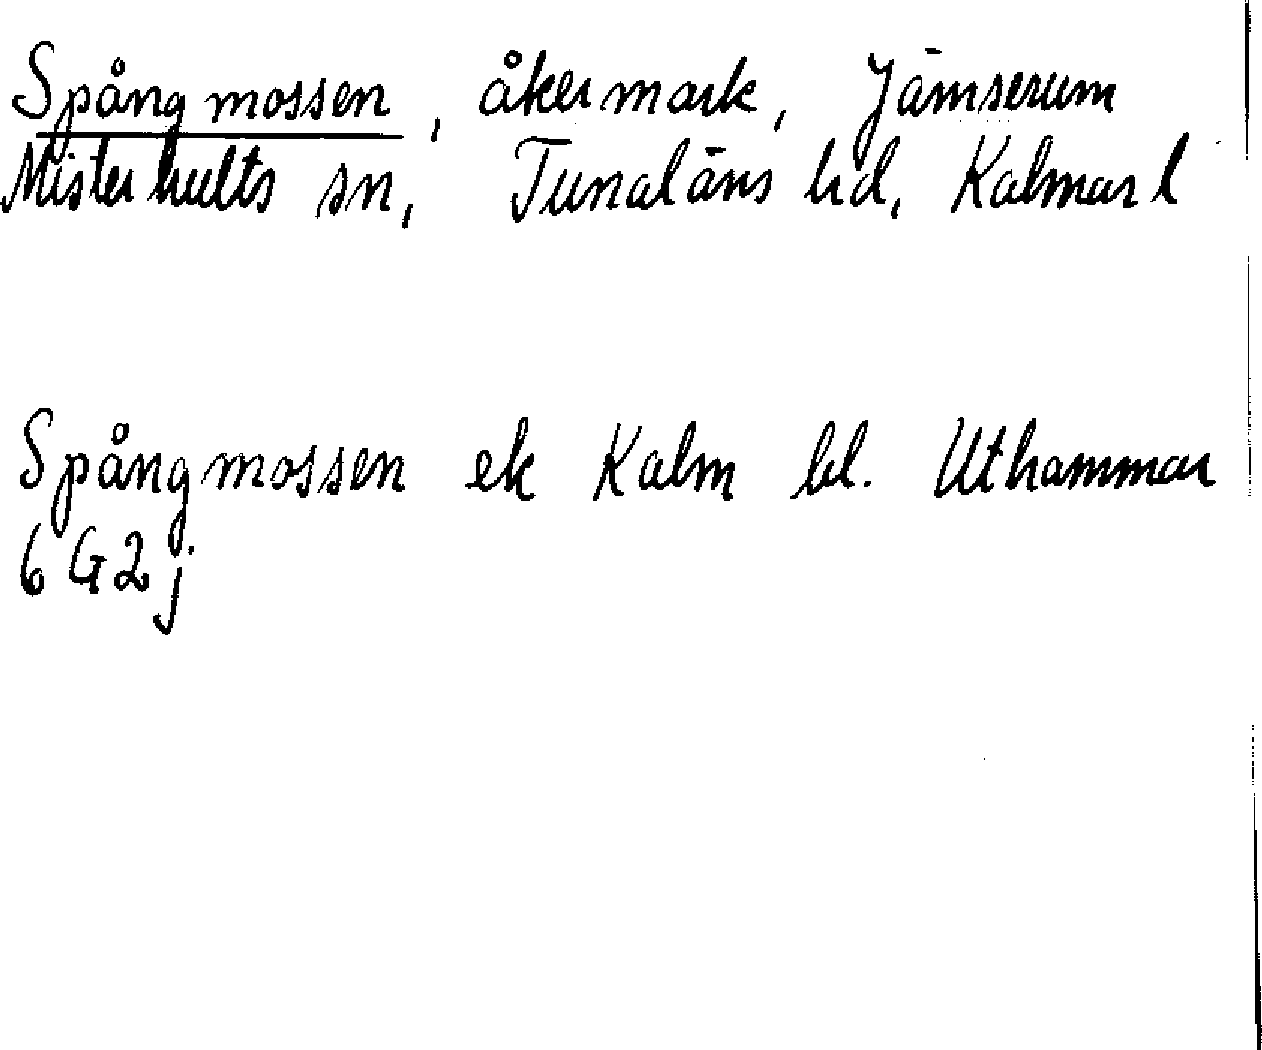 Spångmossen, åkermark, Jämserum
Misterhults sn, Tunaläns hd, Kalmar l
Spångmossen ek Kalm bl. Uthammar
6 G 2 j